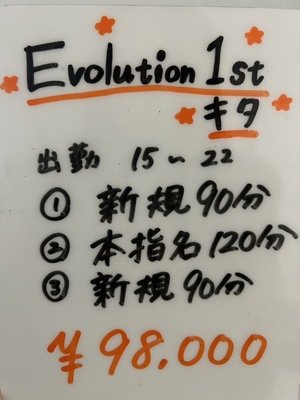 Evolution 1st
キタ
出勤 15～22
① 新規90分
② 本指名120分
③ 新規90分
¥98.000